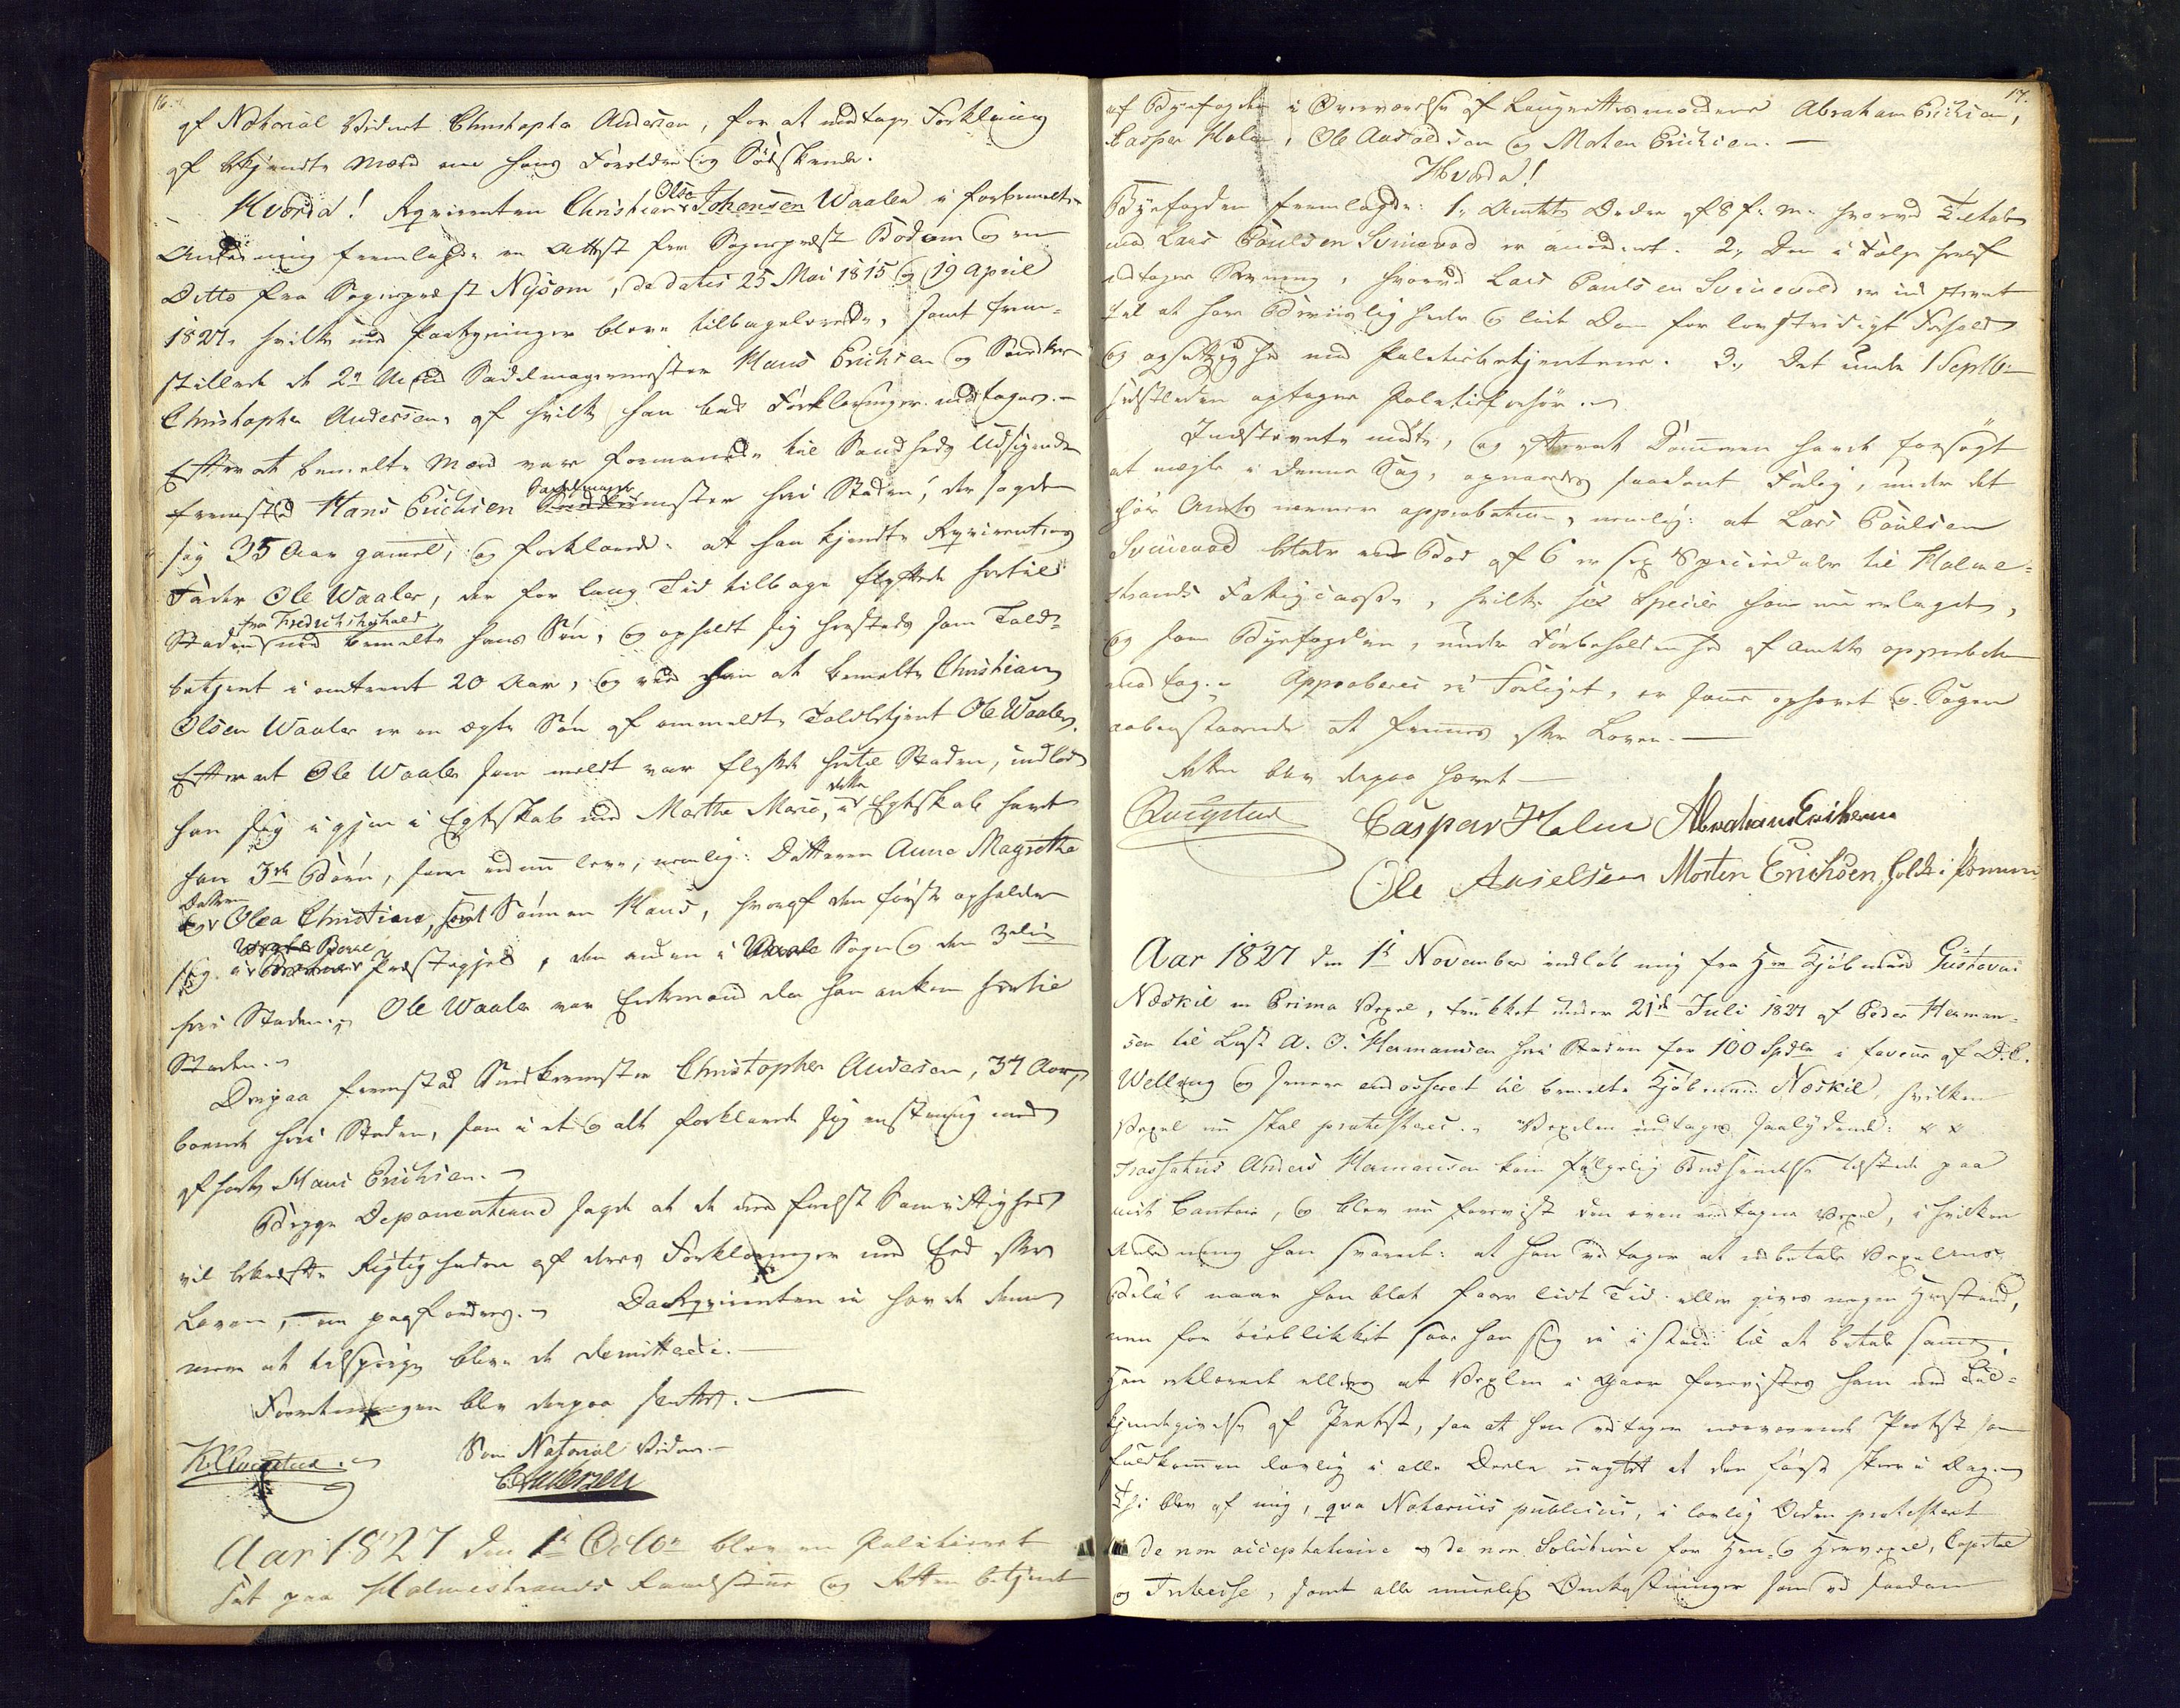 16.
af Notorial Vidnet Christopher Andersen, for at modtage Forklaring
af bekjendte Mænd om hans Forældre og Sødskende.
Hvorda! Reqvirenten Christian Olsen Johansen Waaler i forbemeldte
Anledning fremlagde en Attest fra Sogneprest Bodom og en
Ditto fra Sogneprest Nysom, de datis 25 Mai 1815 og 19 April
1827, hvilke med Paategninger bleve tilbageleverede, samt frem-
stillede de 2de Mænd Sadelmagermester Hans Erichsen og Snedker
Christopher Andersen, af hvilke han bad Forklaringer modtagne.
Efter at bemelte Mænd vare formanede til Sandheds Udsigende
fremstod Hans Erichsen Sadelmagermester her i Staden, der sagde
sig 35 Aar gamel, og forklarede: at han kjendte Reqvirentens
Fader Ole Waaler, der for lang Tid tilbage flyttede hertil
Staden fra Fredrikshald med bemelte hans Søn, og opholdt sig hersteds som Told-
betjent i omtrent 20 Aar, og veed han at bemelte Christian
Olsen Waaler er en ægte Søn af ommeldte Toldbetjent Ole Waaler.
Efter at Ole Waaler som meldt var flyttet hertil Staden, indlod
han sig igjen i Egteskab med Marthe Marie, i dette Egteskab havde
han 3de Børn, som endnu leve, nemlig: Datteren Anne Magrethe
Datteren Olea Christiane, samt Sønnen Hans, hvoraf den første opholder
sig i Borre Præstegjeld, den anden i Sogn og den 3die
her i Staden. Ole Waaler var Enkemand da han ankom hertil
Staden.
Derpaa fremstod Snedkermester Christopher Andersen, 37 Aar,
boende her i Staden, som i et og alt forklarede sig enstemig med
afhørte Hans Erichsen.
Begge Deponenterne sagde at de med freidst Samvittighed
vil bekræfte Rigtigheden af deres Forklaringer med Eed efter
Loven, om paafordres. Da Reqvirenten ei havde dem
mere at tilspørge bleve de demitterede.
Forretningen blev derpaa sluttet.
Som Notorial Vidne
C. Andersen
Aar 1827 den 1te Octbr blev en Politieret
sat paa Holmestrands Raadstue og Retten betjent
17.
af Byefogden i Overværelse af Laugrettesmændene Abraham Erichsen,
Casper Holm, Ole Anselsen og Morten Erichsen.
Hvorda!
Byefogden fremlagde: 1, Amtets Ordre af 8 f. M. hvorved Tiltale
mod Lars Poulsen Svinevold er anordnet. 2, Den i Følge heraf
udtagne Stevning, hvorved Lars Poulsen Svinevold er indstevnt
til at høre Beviisligheder og lide Dom for lovstridigt Forhold
og opsætzighed mod Politiebetjentene. 3, Det under 1 Septbr
sidstleden optagne Politieforhør.
Indstevnte mødte, og efterat Dommeren havde forsøgt
at megle i denne Sag, opnaaedes saadant Forlig, under det
høie Amts nermere approbation, nemlig: at Lars Poulsen
Svinevold betaler en Bod af 6 er sex Speciedaler til Holme-
strands Fattigcasse, hvilke sex Species han nu erlagde,
og som Byefogden, under Forbeholdenhed af Amtets approbation
modtog. Approberes ei Forliget, er samme ophævet og Sagen
aabenstaaende at fremmes efter Loven.
Retten blev derpaa hævet
Qvigstad Caspar Holm Abraham Erichsen
Ole Anselsen Morten Erichsen, holdt i Pennen
Aar 1827 den 1te November indløb mig fra Hr. Kjøbmand Gustavus
Næskil en Prima Vexel, trukket under 21de Juli 1827 af Peder Herman-
sen til A. O. Hermansen her i Staden for 100 Spdlr i faveur af D. C.
Welling og senere endosseret til bemelte Kjøbmand Næskil, hvilken
Vexel nu skal protesteres. Vexelen indtages saalydende: x x
Trassatus Anders Hermansen kom følgelig Budsendelse tilstede paa
mit Contoir, og blev nu forevist den oven indtagne Vexel, i hvilken
Anledning han svarede: at han vedtager at indbetale Vexelens
Beløb naar han blot faaer lidt Tid eller gives nogen Henstand,
men for øieblikket saae han sig ei i stand til at betale samme.
Han erklærede ellers at Vexelen i Gaar forevistes ham med Til-
kjendegivelse af Protest, saa at han vedtager nærværende Protest som
fuldkommen lovlig i alle Deele uagtet at den først skeer i Dag.
Thi blev af mig, qva Notarius publicus, i lovlig Orden protesteret
de non acceptatione og de non Solutione for Hen- og Hervexel, Capital
og Interesse, samt alle muelige Omkostninger som ved saadan